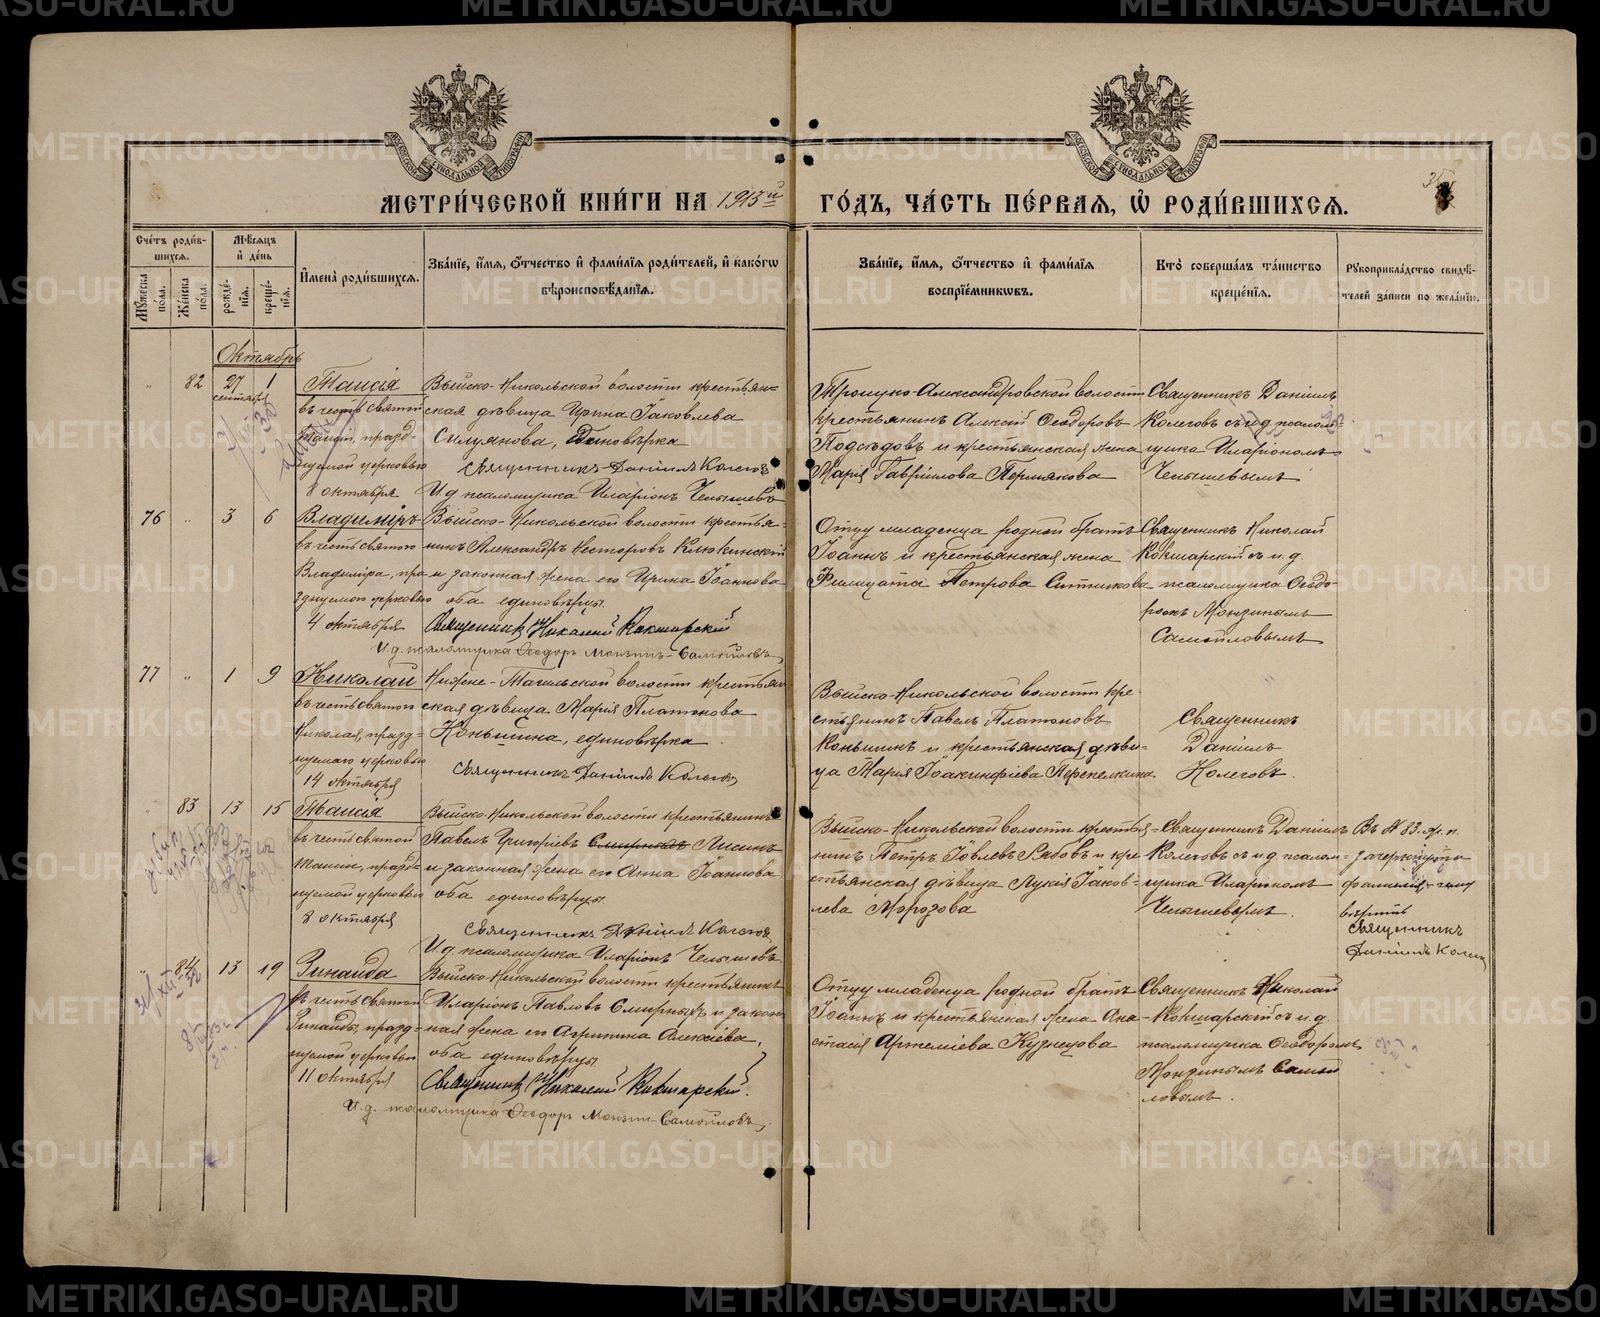 МЕТРИ́ЧЕСКОЙ КНИ́ГИ НА 1913й ГО́ДЪ, ЧА́СТЬ ПЕ́РВАЯ, Ѡ҆ РОДИ́ВШИХСЯ.
Сче́тъ роди́в-
шихся.
Мѣ́сяцъ
и҆ де́нь
Мꙋ́жеска
по́ла.
Же́нска
по́ла.
рожде́-
нїя.
креще́-
нїя.
И҆мена̀ роди́вшихся.
Зва́нїе, и҆́мя, ѻ҆́тчество и҆ фами́лїя роди́телей, и҆ како́гѡ
вѣроисповѣ́данїя.
Зва́нїе, и҆́мя, ѻ҆́тчество и҆ фами́лїя
воспрїе́мникѡвъ.
Кто̀ соверша́лъ та́инство
креще́нїя.
Рꙋкоприкла́дство свидѣ́-
телей за́писи по жела́нїю.
Октябрь
82
27
сентября
1
Таисія
въ честь святой
Таисіи, празд-
нуемой церковью
8 октября
Выйско-Никольской волости крестьян-
ская дѣвица Ирина Іаковлева
Силуянова, единовѣрка
Священникъ Даніилъ Колегов
И.д. псаломщика Иларіонъ Челышевъ
Троицко-Александровской волости
крестьянинъ Алексій Ѳеодоровъ
Подсѣдовъ и крестьянская жена
Марія Гавріилова Пермякова
Священникъ Даніилъ
Колеговъ съ и.д. псалом-
щика Иларіономъ
Челышевымъ
76
3
6
Владиміръ
въ честь святого
Владиміра, пра-
зднуемаго церковью
4 октября
Выйско-Никольской волости крестья-
нинъ Александръ Несторовъ Клюкинскій
и законная жена его Ирина Іоаннова
оба единовѣрцы.
Священникъ Николай Кокшарскій
И.д. псаломщика Ѳеодоръ Монзинъ-Самойловъ
Отцу младенца родной братъ
Іоаннъ и крестьянская жена
Филицата Петрова Ситникова
Священникъ Николай
Кокшарскій съ и.д.
псаломщика Ѳеодо-
ромъ Монзинымъ
Самойловымъ
77
1
9
Николай
въ честь святого
Николая, празд-
нуемаго церковью
14 октября
Нижне-Тагильской волости крестьян-
ская дѣвица Марія Платонова
Коньшина, единовѣрка
Священникъ Даніилъ Колегов
Выйско-Никольской волости кре-
стьянинъ Павелъ Платоновъ
Коньшинъ и крестьянская дѣви-
ца Марія Іоакинфіева Перепелкина.
Священникъ
Даніилъ
Колеговъ.
83
13
15
Таисія
въ честь святой
Таисіи, празд-
нуемой церковью
8 октября
Выйско-Никольской волости крестьянинъ
Павелъ Григоріевъ Смирныхъ Лисинъ
и законная жена его Анна Іоаннова
оба единовѣрцы
Священникъ Даніилъ Колегов
И.д. псаломщика Иларіонъ Челышевъ
Выйско-Никольской волости крестья-
нинъ Петръ Іовлевъ Рябовъ и кре-
стьянская дѣвица Лукія Іаков-
лева Морозова
Священникъ Даніилъ
Колеговъ съ и.д. псалом-
щика Иларіономъ
Челышевымъ.
Въ № 83 гр. п.
зачеркнутой
фамиліи
вѣрить
Священникъ
Даніилъ Колегов
84
13
19
Зинаида
въ честь святой
Зинаиды, празд-
нуемой церковью
11 октября
Выйско-Никольской волости крестьянинъ
Иларіонъ Павловъ Смирныхъ и закон-
ная жена его Агрипина Алексіева,
оба единовѣрцы
Священникъ Николай Кокшарскій.
И.д. псаломщика Ѳеодоръ Монзин-Самойловъ
Отцу младенца родной братъ
Іоаннъ и крестьянская жена Ана-
стасія Артеміева Кузнецова
Священникъ Николай
Кокшарскій съ и.д.
псаломщика Ѳеодоромъ
Монзинымъ Самой
ловымъ.
METRIKI.GASO-URAL.RU